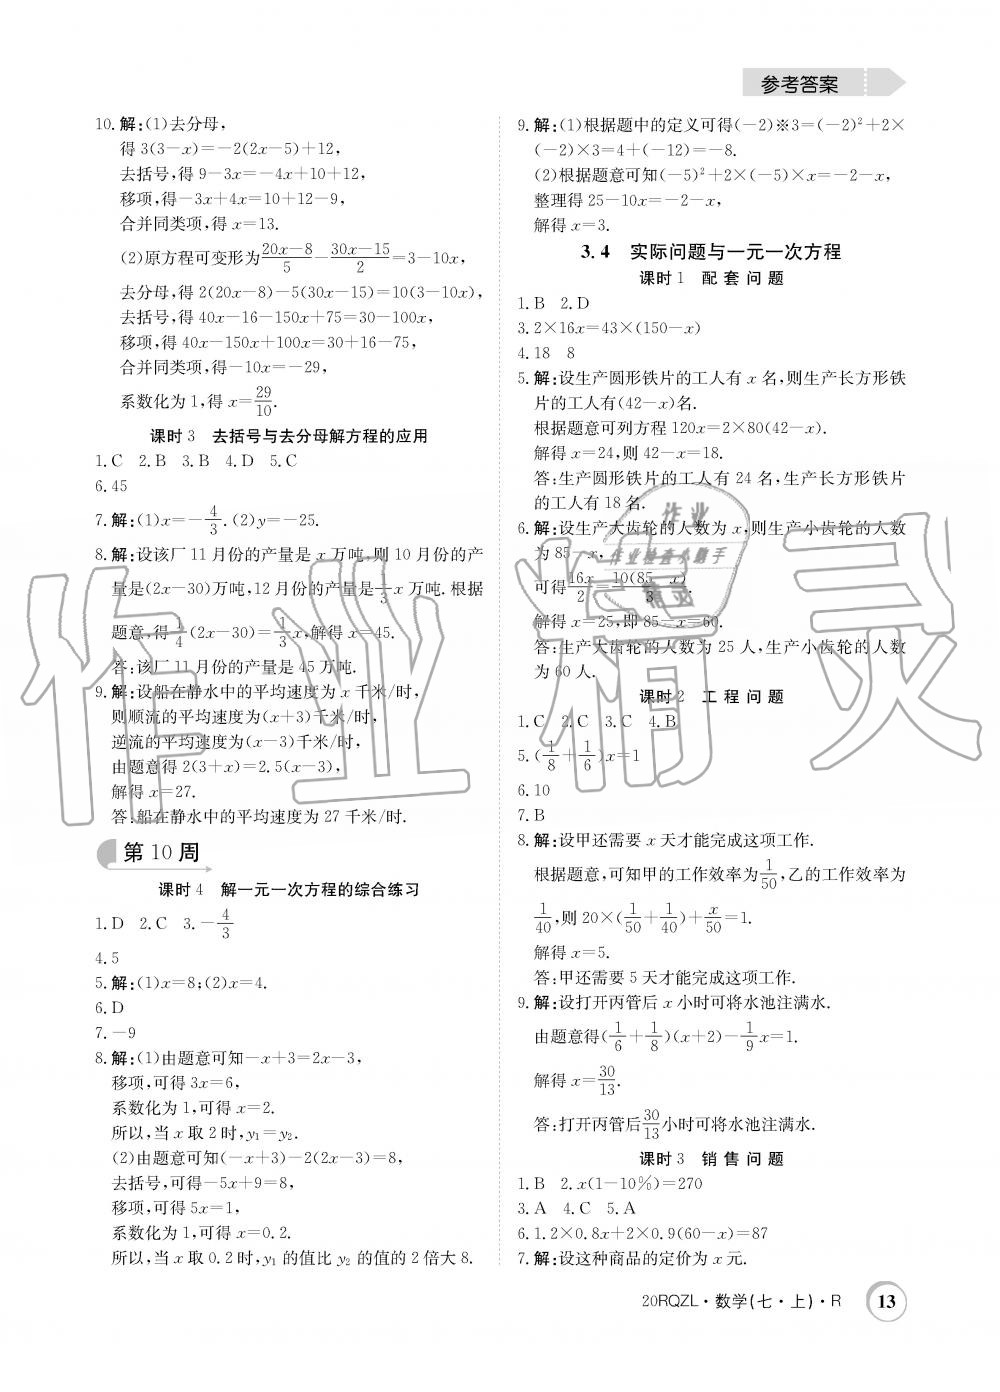 参考答案
10.解:(1)去分母,
得3(3-x)=-2(2x-5)+12,
去括号,得9-3x=-4x+10+12,
移项,得-3x+4x=10+12-9,
合并同类项,得x=13.
(2)原方程可变形为(20x-8)/5-(30x-15)/2=3-10x,
去分母,得2(20x-8)-5(30x-15)=10(3-10x),
去括号,得40x-16-150x+75=30-100x,
移项,得40x-150x+100x=30+16-75,
合并同类项,得-10x=-29,
系数化为1,得x=29/10.
课时3 去括号与去分母解方程的应用
1.C 2.B 3.B 4.D 5.C
6.45
7.解:(1)x=-4/3.(2)y=-25.
8.解:设该厂11月份的产量是x万吨,则10月份的产
量是(2x-30)万吨,12月份的产量是1/3x万吨.根据
题意,得1/4(2x-30)=1/3x,解得x=45.
答:该厂11月份的产量是45万吨.
9.解:设船在静水中的平均速度为x千米/时,
则顺流的平均速度为(x+3)千米/时,
逆流的平均速度为(x-3)千米/时,
由题意得2(3+x)=2.5(x-3),
解得x=27.
答:船在静水中的平均速度为27千米/时.
第10周
课时4 解一元一次方程的综合练习
1.D 2.C 3.-4/3
4.5
5.解:(1)x=8;(2)x=4.
6.D
7.-9
8.解:(1)由题意可知-x+3=2x-3,
移项,可得3x=6,
系数化为1,可得x=2.
所以,当x取2时,y₁=y₂.
(2)由题意可知(-x+3)-2(2x-3)=8,
去括号,可得-5x+9=8,
移项,可得5x=1,
系数化为1,可得x=0.2.
所以,当x取0.2时,y₁的值比y₂的值的2倍大8.
9.解:(1)根据题中的定义可得(-2)※3=(-2)²+2×
(-2)×3=4+(-12)=-8.
(2)根据题意可知(-5)²+2×(-5)×x=-2-x,
整理得25-10x=-2-x,
解得x=3.
3.4 实际问题与一元一次方程
课时1 配套问题
1.B 2.D
3.2×16x=43×(150-x)
4.18 8
5.解:设生产圆形铁片的工人有x名,则生产长方形铁
片的工人有(42-x)名.
根据题意可列方程120x=2×80(42-x).
解得x=24,则42-x=18.
答:生产圆形铁片的工人有24名,生产长方形铁片
的工人有18名.
6.解:设生产大齿轮的人数为x,则生产小齿轮的人数
为85-x,
可得16x/2=10(85-x)/3.
解得x=25,即85-x=60.
答:生产大齿轮的人数为25人,生产小齿轮的人数
为60人.
课时2 工程问题
1.C 2.C 3.C 4.B
5.(1/8+1/6)x=1
6.10
7.B
8.解:设甲还需要x天才能完成这项工作.
根据题意,可知甲的工作效率为1/50,乙的工作效率为
1/40,则20×(1/50+1/40)+x/50=1.
解得x=5.
答:甲还需要5天才能完成这项工作.
9.解:设打开丙管后x小时可将水池注满水.
由题意得(1/6+1/8)(x+2)-1/9x=1.
解得x=30/13.
答:打开丙管后30/13小时可将水池注满水.
课时3 销售问题
1.B 2.x(1-10%)=270
3.A 4.C 5.A
6.1.2×0.8x+2×0.9(60-x)=87
7.解:设这种商品的定价为x元.
20RQZL·数学(七·上)·R 13
作业精灵
作业
作业检查小助手
精灵